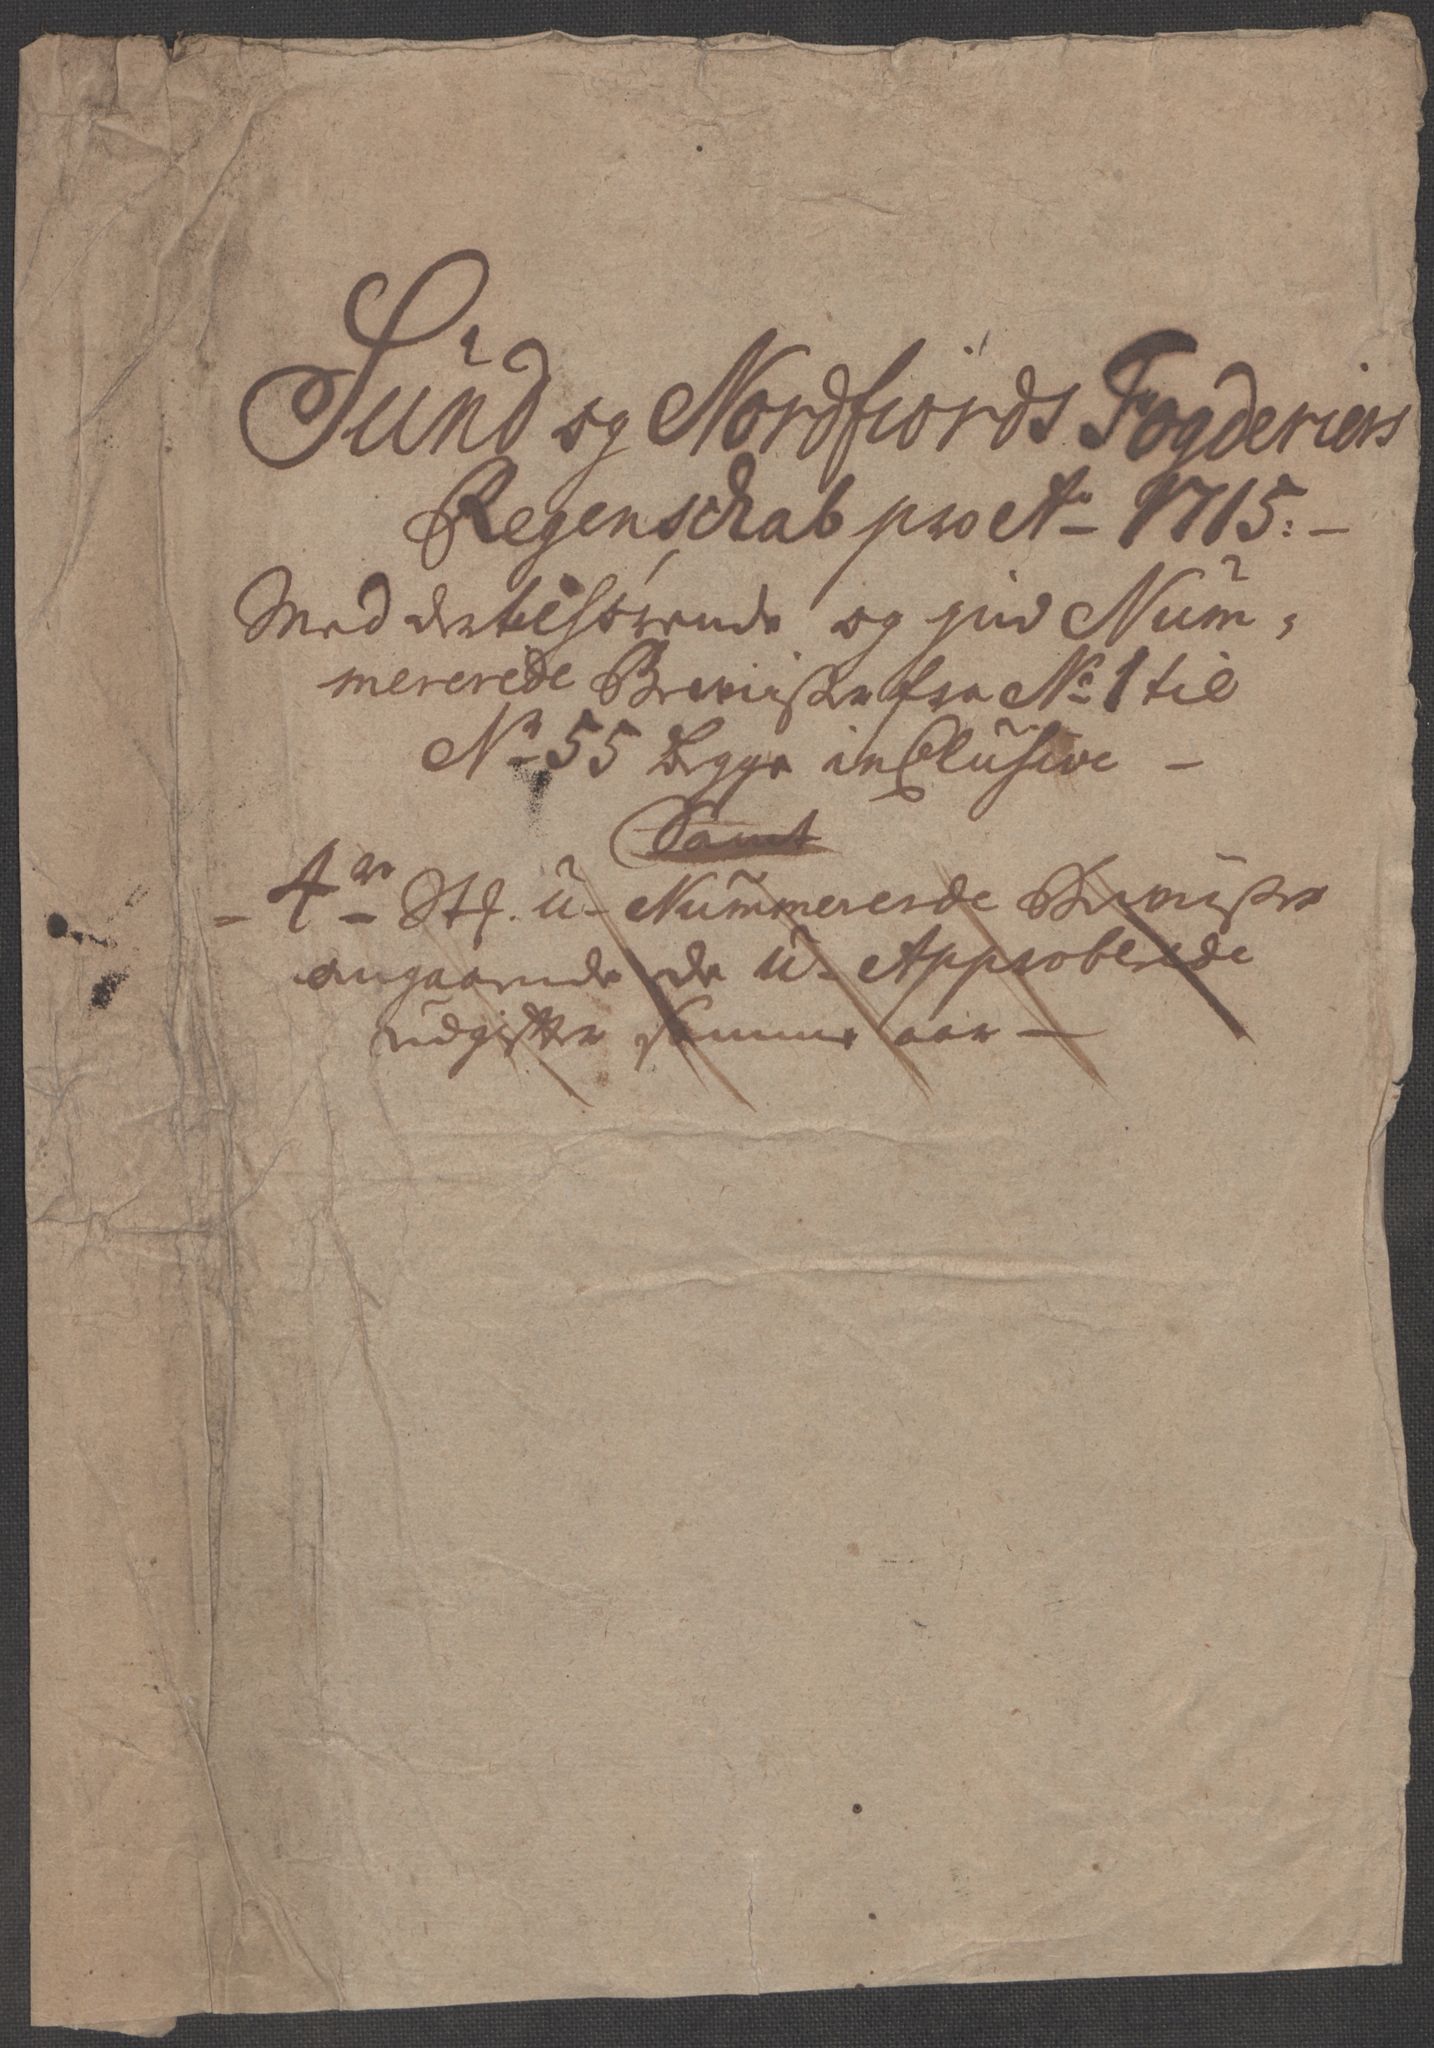 Sünd og Nordfiords Fogderiers
Regenschab pro Ao 1715:-
Med dertilhörende og Nüm,
mererede Bewiißer fra No 1 til
No 55 begge inclüsive -
Samt
- 4re St. ü- Nümmererede Bewiißer
angaaende de ü- Approberede
üdgifter samme aar -